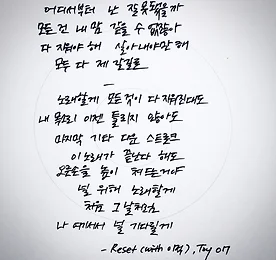 어디서부터 난 잘못됐을까
모든 건 내 맘 같을 수 없잖아
다 지워야 해 살아내야만 해
모두 다 제 갈길로
—
노래할게 모든 것이 다 지워진대도
내 목소리 이젠 들리지 않아도
마지막 기타 다운 스트로크
이 노래가 끝난다 해도
오른손을 높이 쳐든거야
널 위해 노래할게
처음 그 날처럼
나 여기서 널 기다릴게
- Reset (with 이적), Toy 07